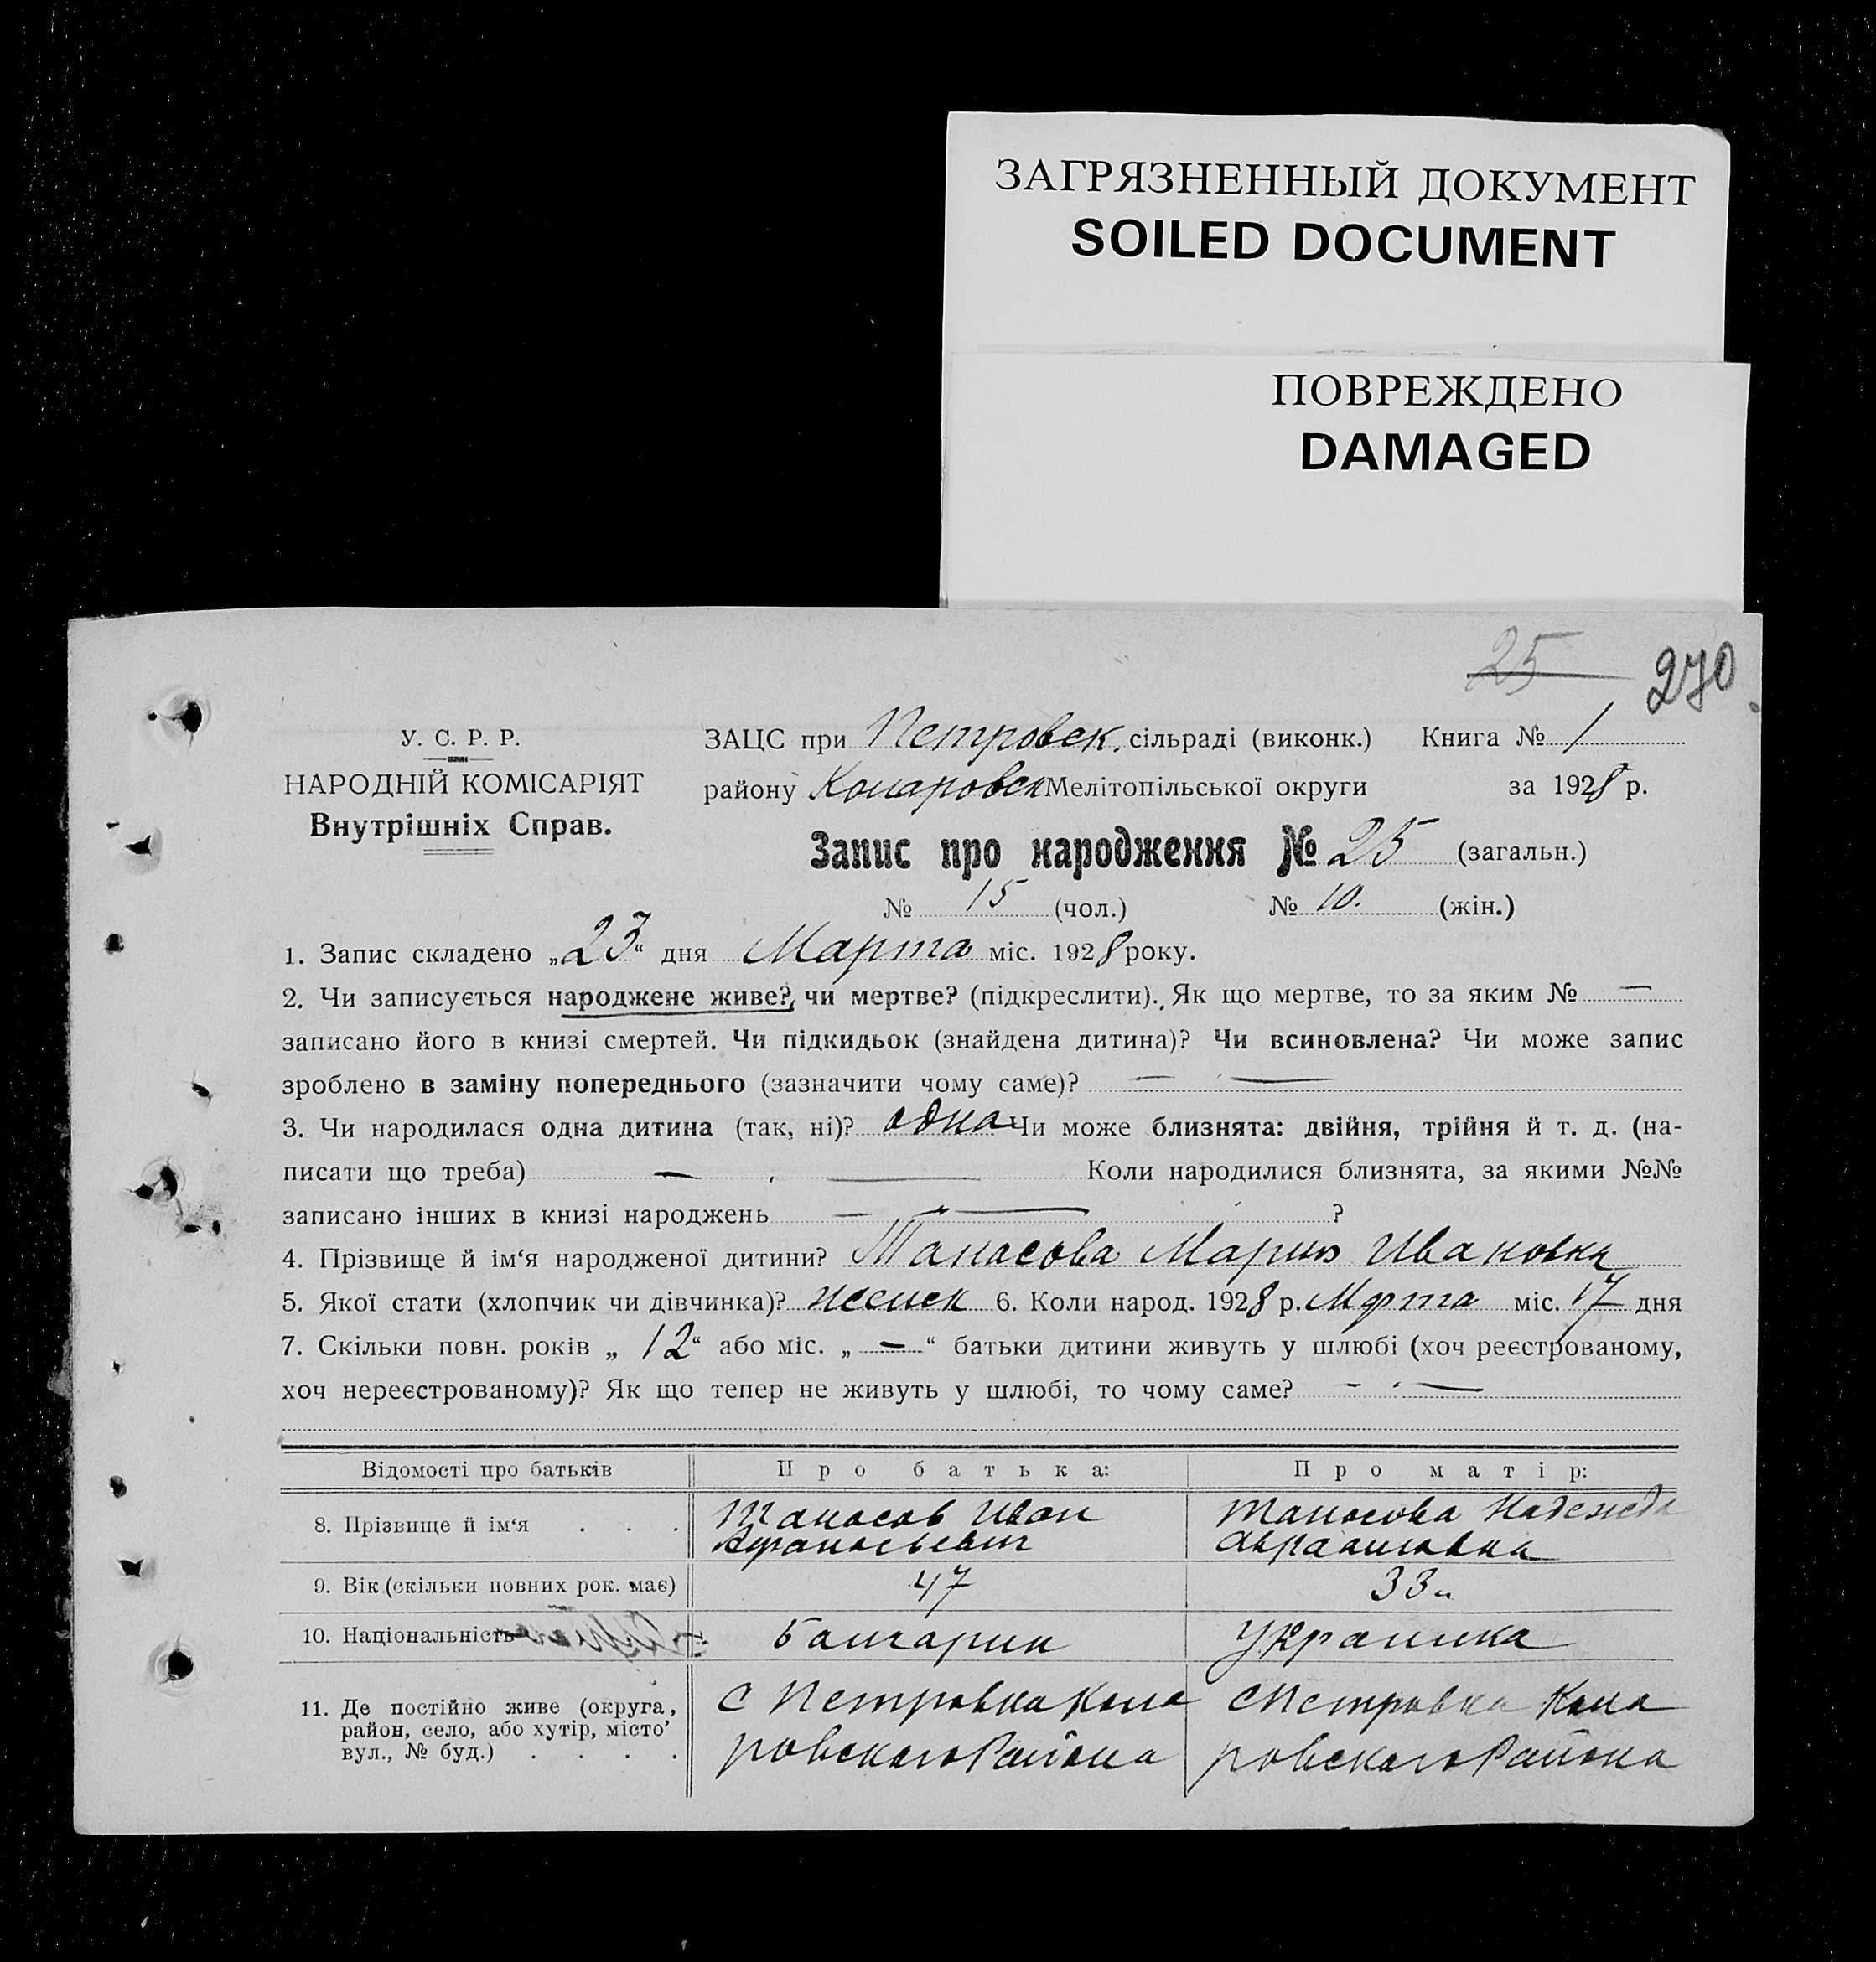 ЗАГРЯЗНЕННЫЙ ДОКУМЕНТ
SOILED DOCUMENT
ПОВРЕЖДЕНО
DAMAGED
25 270
У. С. Р. Р.
НАРОДНІЙ КОМІСАРІЯТ
Внутрішніх Справ.
ЗАЦС при Петровск. сільраді (виконк.) Книга № 1
району Коларовск Мелітопільської округи за 1928 р.
Запис про народження № 25 (загальн.)
№ 15 (чол.) № 10. (жін.)
1. Запис складено „23“ дня Марта міс. 1928 року.
2. Чи записується народжене живе?, чи мертве? (підкреслити). Як що мертве, то за яким № —
записано його в книзі смертей. Чи підкидьок (знайдена дитина)? Чи всиновлена? Чи може запис
зроблено в заміну попереднього (зазначити чому саме)? — —
3. Чи народилася одна дитина (так, ні)? одна Чи може близнята: двійня, трійня й т. д. (на-
писати що треба) — — Коли народилися близнята, за якими №№
записано інших в книзі народжень — — ?
4. Прізвище й ім‘я народженої дитини? Танасова Мария Ивановна
5. Якої стати (хлопчик чи дівчинка)? женск 6. Коли народ. 1928 р. Марта міс. 17 дня
7. Скільки повн. років „ 12“ або міс. „ — “ батьки дитини живуть у шлюбі (хоч реєстрованому,
хоч нереєстрованому)? Як що тепер не живуть у шлюбі, то чому саме? — —
Відомості про батьків Про батька: Про матір:
8. Прізвище й ім‘я . . . Танасов Иван Афанасьевич Танасова Надежда Авраамовна
9. Вік (скільки повних рок. має) 47 33
10. Національність Балгарин Украинка
11. Де постійно живе (округа, район, село, або хутір, місто’ вул., № буд.) . . . . С Петровка Кола ровского Района С Петровка Кола ровского Района